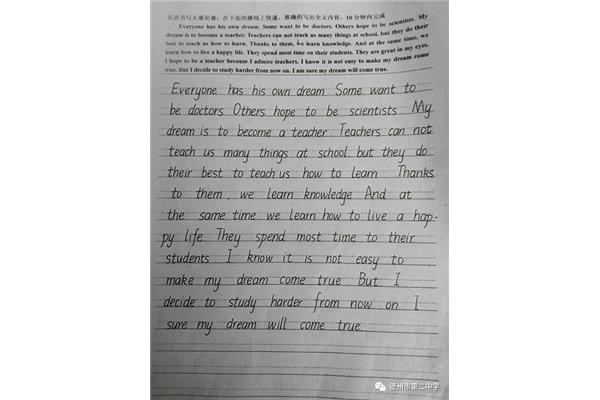 英语书写大赛初赛：在下面的横线上快速、准确的写出全文内容。10分钟内完成
Everyone has his own dream. Some want to be doctors. Others hope to be scientists. My
dream is to become a teacher. Teachers can not teach us many things at school, but they do their
best to teach us how to learn. Thanks to them, we learn knowledge. And at the same time, we
learn how to live a happy life. They spend most time on their students. They are great in my eyes.
I hope to be a teacher because I admire teachers. I know it is not easy to make my dream come
true. But I decide to study harder from now on. I am sure my dream will come true.
Everyone has his own dream Some want to
be doctors Others hope to be scientists My
dream is to become a teacher Teachers can not
teach us many things at school but they do
their best to teach us how to learn Thanks
to them, we learn knowledge And at
the same time we learn how to live a hap-
py life. They spend most time to their
students I know it is not easy to
make my dream come true But I
decide to study harder from now on I
sure my dream will come true
德州市第二中学